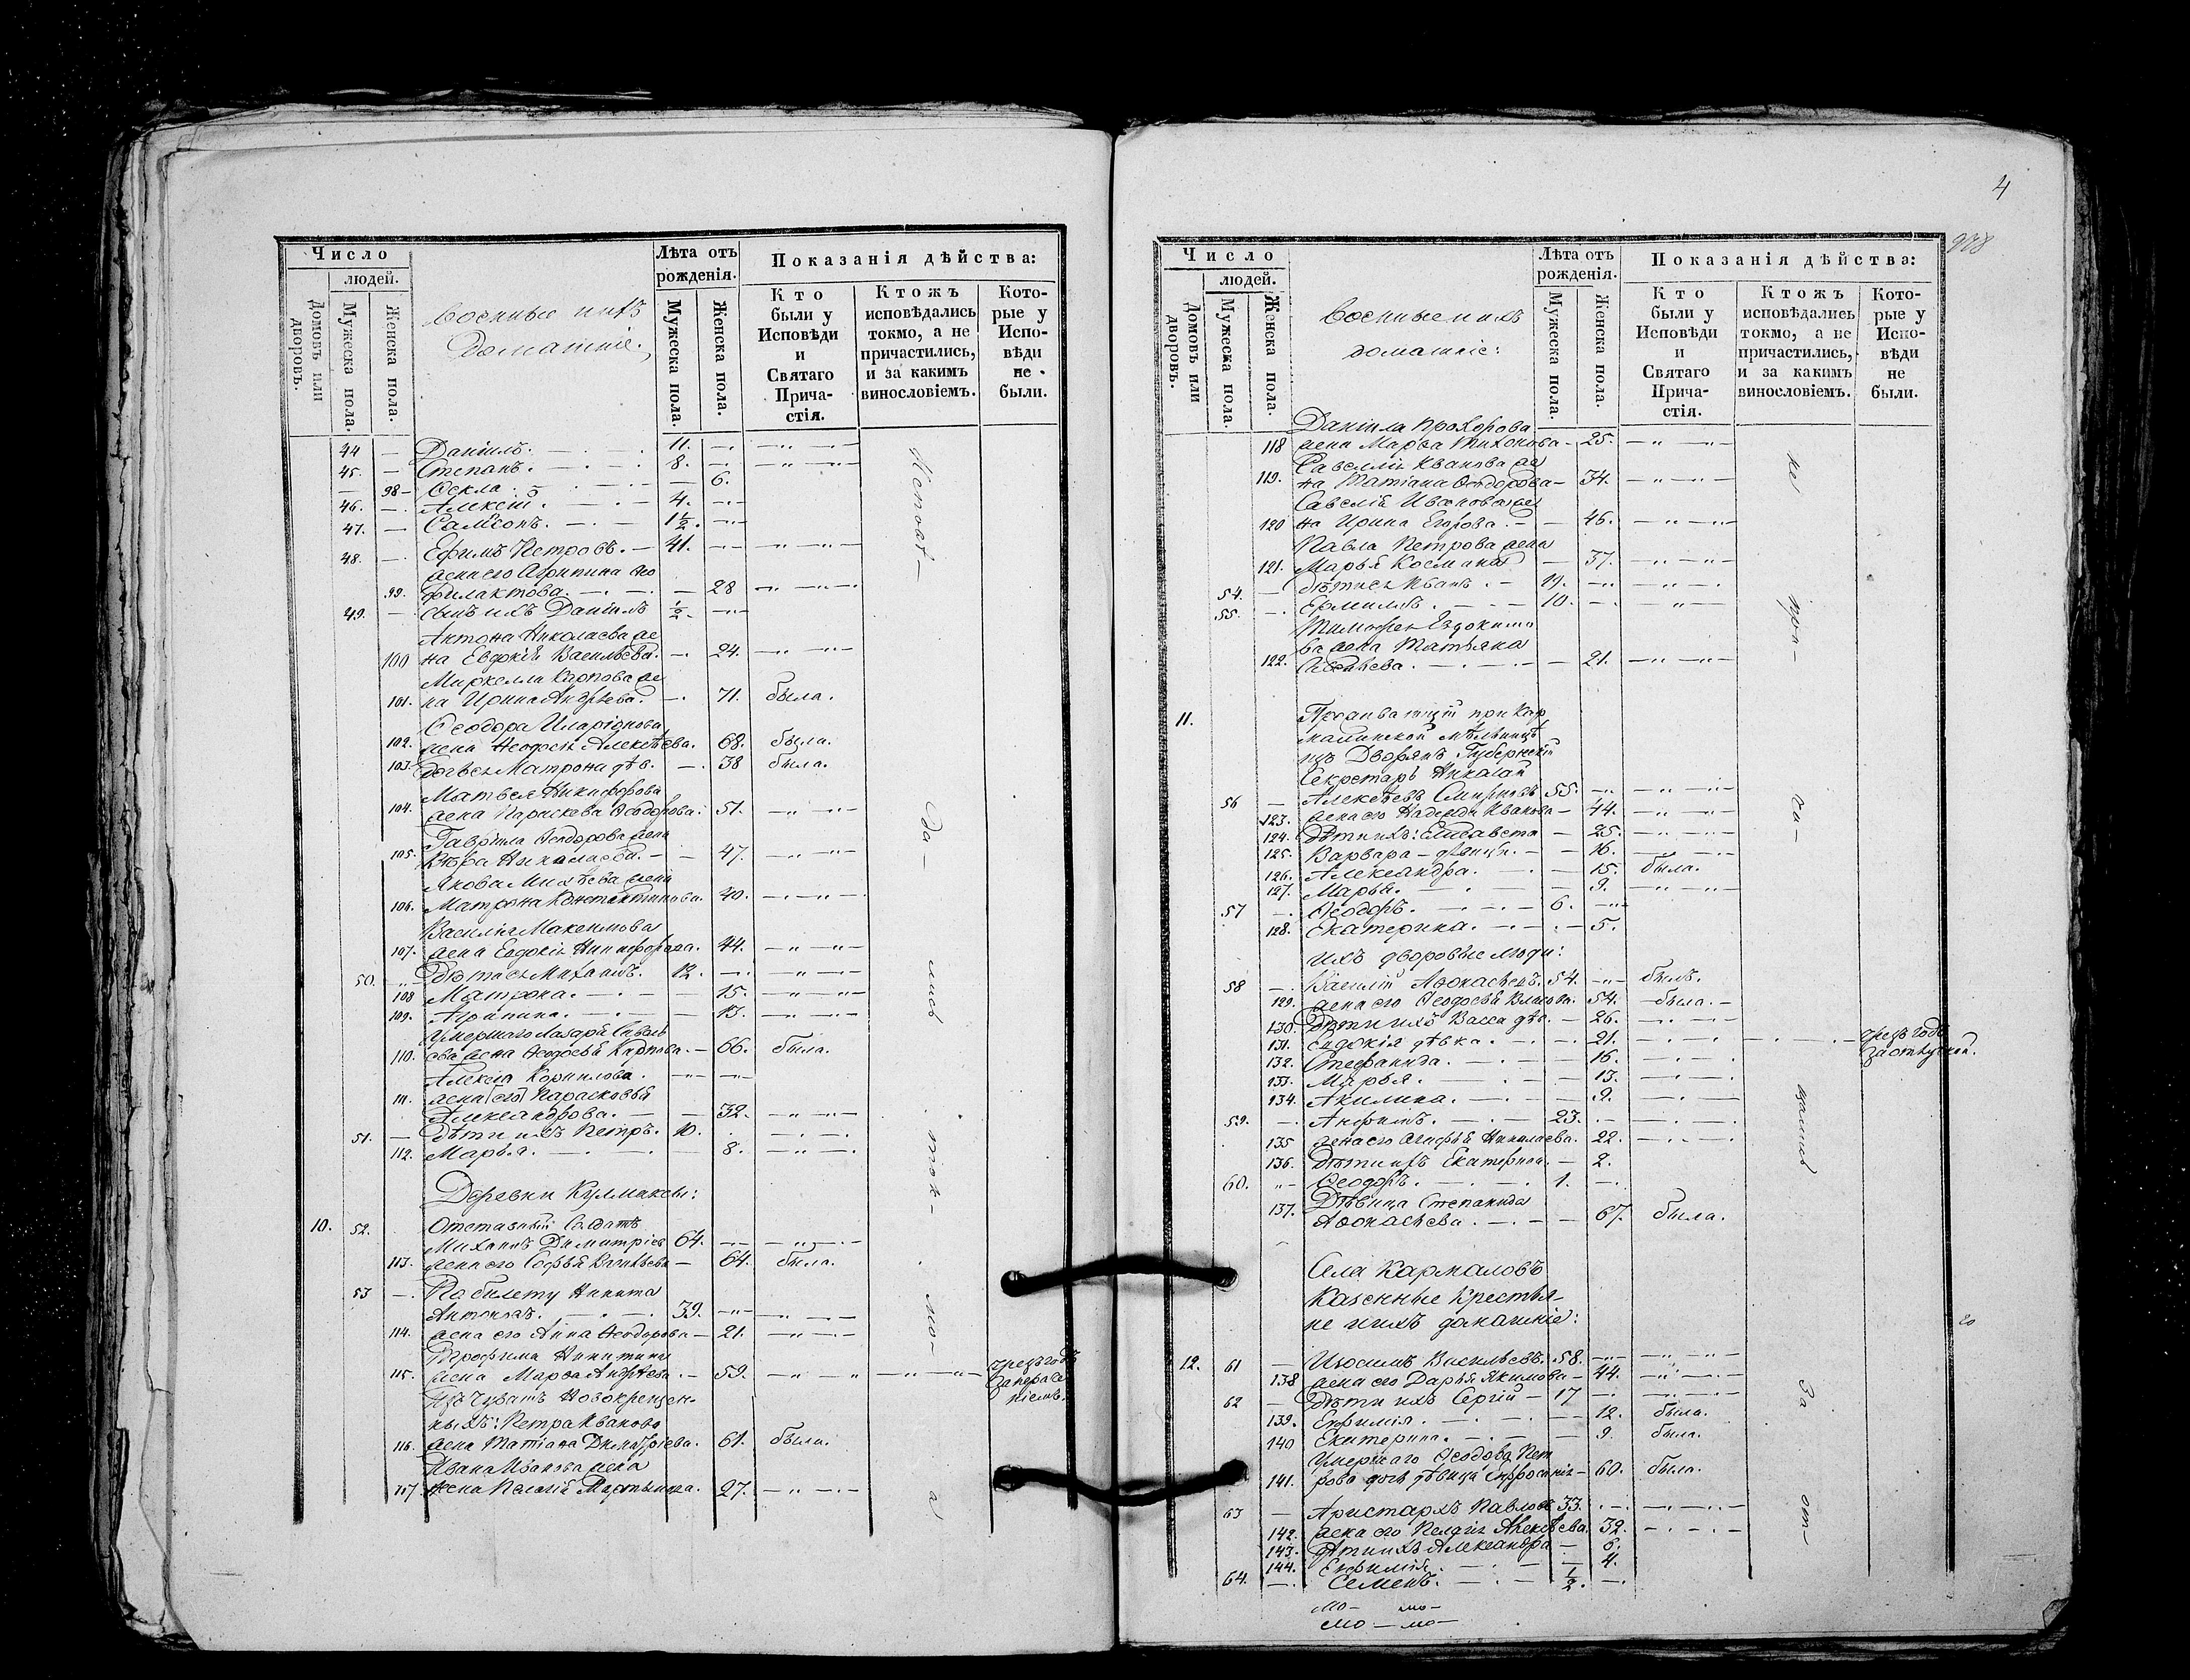 Число
людей.
Домовъ или дворовъ.
Мужеска пола.
Женска пола.
Военные ихъ
Домашніе:
Лѣта отъ
рожденія.
Мужеска пола.
Женска пола.
Показанія дѣйства:
Кто были у Исповѣди и Святаго Прича-стія.
Ктожъ исповѣдались токмо, а не причастились, и за какимъ винословіемъ.
Кото-рые у Испо-вѣди не были.
44 — Даніилъ. 11.
45. — Степанъ. 8.
— 98 — Ѳекла. 6.
46. — Алексій. 4.
47. — Самсонъ. 1½.
48. — Ефимъ Петровъ. — 41.
жена его Агрипина
99. Филактова. — 28
49. — сынъ ихъ Даніилъ ½
Антона Николаева же
100 на Евдокія Васильева. 24.
Миркелла Карпова же
101. на Ирина Андрѣева. 71. была.
Ѳеодора Иларіонова
102. жена Ѳеодосья Алексѣева. 68. была.
103. дочь Матрона дѣв. 38 была.
Матвея Никифорова
104. жена Параскева Ѳеодорова. 51.
Гавріила Ѳеодорова жена
105. Вѣра Николаева. 47.
Якова Михѣева жена
106. Матрона Константинова. 40.
Василія Максимова
107. жена Евдокія Никифорова. 44.
50. Дѣти ея Михаилъ. 12.
108 Матрона. 15.
109. Агрипина. 13.
Умершаго Лазаря
110. ева жена Ѳеодосья Карпова. 66. была.
Алексія Корнилова.
111. жена его Парасковья
Александрова. 32.
51. Дѣти ихъ Петръ. 10.
112. Марья. 8.
Деревни Кулмаксы:
10. 52. Отставный Солдатъ
Михаилъ Димитріевъ 64.
113. жена его Софья Васильева — 64. была.
53 — По билету Никита
Антоновъ. 39.
114. жена его Анна Ѳеодорова — 21.
Трофима Никитина
115. жена Марѳа Андрѣева. 59. чрезъ годъ
Изъ Чувашъ Новокрещен-
ныхъ: Петра Иванова
116. жена Татіана Димитріева. 61. была.
Ивана Иванова жена
117 жена Пелагія Мартынова. 27.
4
978
Число
людей.
Домовъ или дворовъ.
Мужеска пола.
Женска пола.
Военные и ихъ
домашніе:
Лѣта отъ
рожденія.
Мужеска пола.
Женска пола.
Показанія дѣйства:
Кто были у Исповѣди и Святаго Прича-стія.
Ктожъ исповѣдались токмо, а не причастились, и за какимъ винословіемъ.
Кото-рые у Испо-вѣди не были.
Даніила Прохорова
118 жена Марѳа Тихонова — 25.
Савелія Иванова же
119. на Татіана Ѳеодорова — 34.
Савелія Иванова же
120 на Ирина Егорова. 46.
Павла Петрова жена
121. Марья Космина 37.
54. — дѣти ея Иванъ. — 19.
55. — Ермилъ. 10.
Тимофея Евдокимо
ва жена Татьяна
122. 21.
11. Проживающій при Кар
малинской мѣльницѣ
изъ Дворянъ Губернскій
Секретарь Николай
56 — Алексѣевъ Смирновъ 55.
123. жена его Надежда Иванова — 44.
124. Дѣти ихъ: Елисавета — 25.
125. Варвара — дѣвицы. 16.
126. Александра. 15. была.
127. Марья. 9.
57 — Ѳеодоръ. 6.
128. Екатерина. 5.
ихъ дворовые люди:
58 — Василій Аѳонасьевъ. 54. былъ.
129. жена его Ѳеодосья Власова. 54. была.
130. Дѣти ихъ Васса дѣв. — 26.
131. Евдокія дѣвка. 21. чрезъ годъ
за отлучкой.
132. Стефанида. 16.
133. Марья. 13.
134. Акилина. 9.
59. — Анфимъ. 23.
135 жена его Агафья Николаева. 22.
136. Дѣти ихъ Екатерина. — 2.
60. Ѳеодоръ. 1.
137. Дѣвица Степанида
Аѳонасьева. 67. была.
Села Кармаловъ
Казенные Крестья-
не и ихъ домашніе:
20
12. 61 — Васильевъ. 58.
138 жена его Дарья Якимова — 44.
62 — дѣти ихъ Сергій — 17
139. Евфимія. 12. была.
140 Екатерина. 9. была.
Умершаго Ѳеодора Пет
141. рова дочь дѣвица Евфросинія — 60. была.
63 — Аристархъ Павловъ 33.
142. жена его Пелагія Алексѣева. 32.
143. дѣти ихъ Александра 6.
144. Евфимія. 4.
64. — Семенъ. ½.